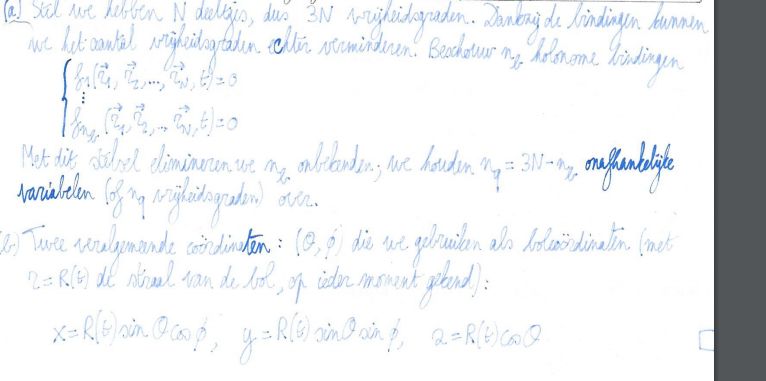 (a) Stel we hebben N deeltjes, dus 3N vrijheidsgraden. Dankzij de bindingen kunnen
we het aantal vrijheidsgraden echter verminderen. Beschouw n_b holonome bindingen
{ f_1(r⃗_1, r⃗_2, ..., r⃗_N, t) = 0
⋮
f_{n_b}(r⃗_1, r⃗_2, ..., r⃗_N, t) = 0
Met dit stelsel elimineren we n_b onbekenden; we houden n_q = 3N - n_b onafhankelijke
variabelen (of n_q vrijheidsgraden) over.
(b) Twee veralgemeende coördinaten : (θ, φ) die we gebruiken als bolcoördinaten (met
r = R(t) de straal van de bol, op ieder moment gekend) :
x = R(t) sin θ cos φ, y = R(t) sin θ sin φ, z = R(t) cos θ